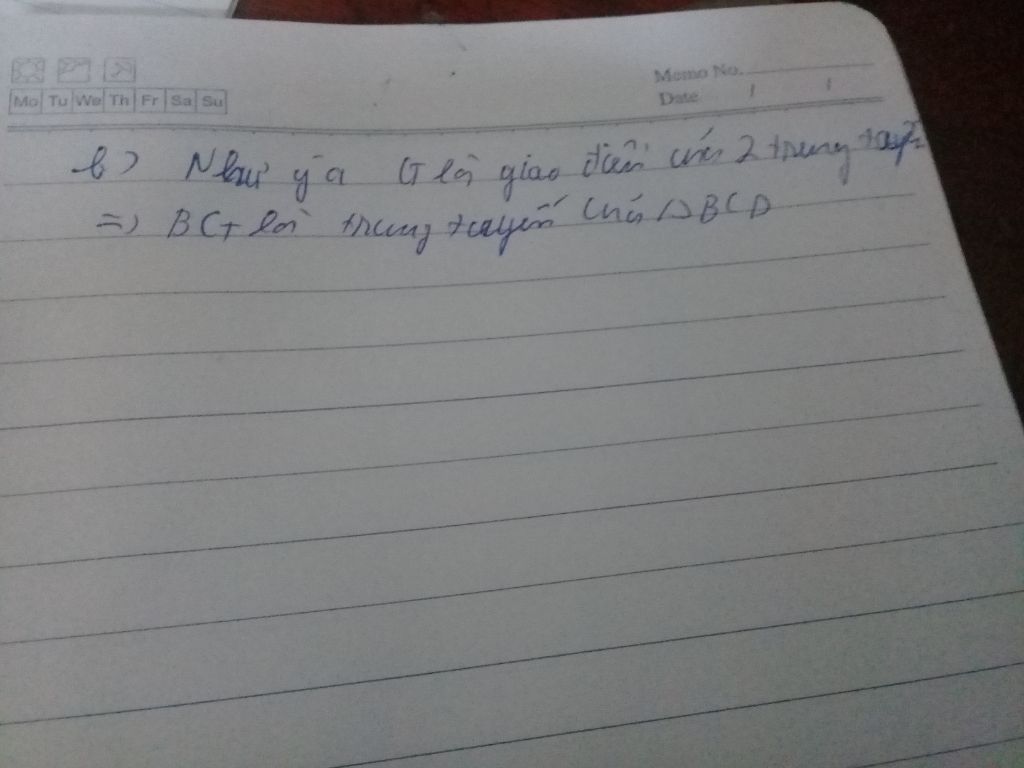 Memo No.
Mo Tu We Th Fr Sa Su
Date / /
b) Như ý a G là giao điểm của 2 trung tuyến
=> BG là trung tuyến của △BCD